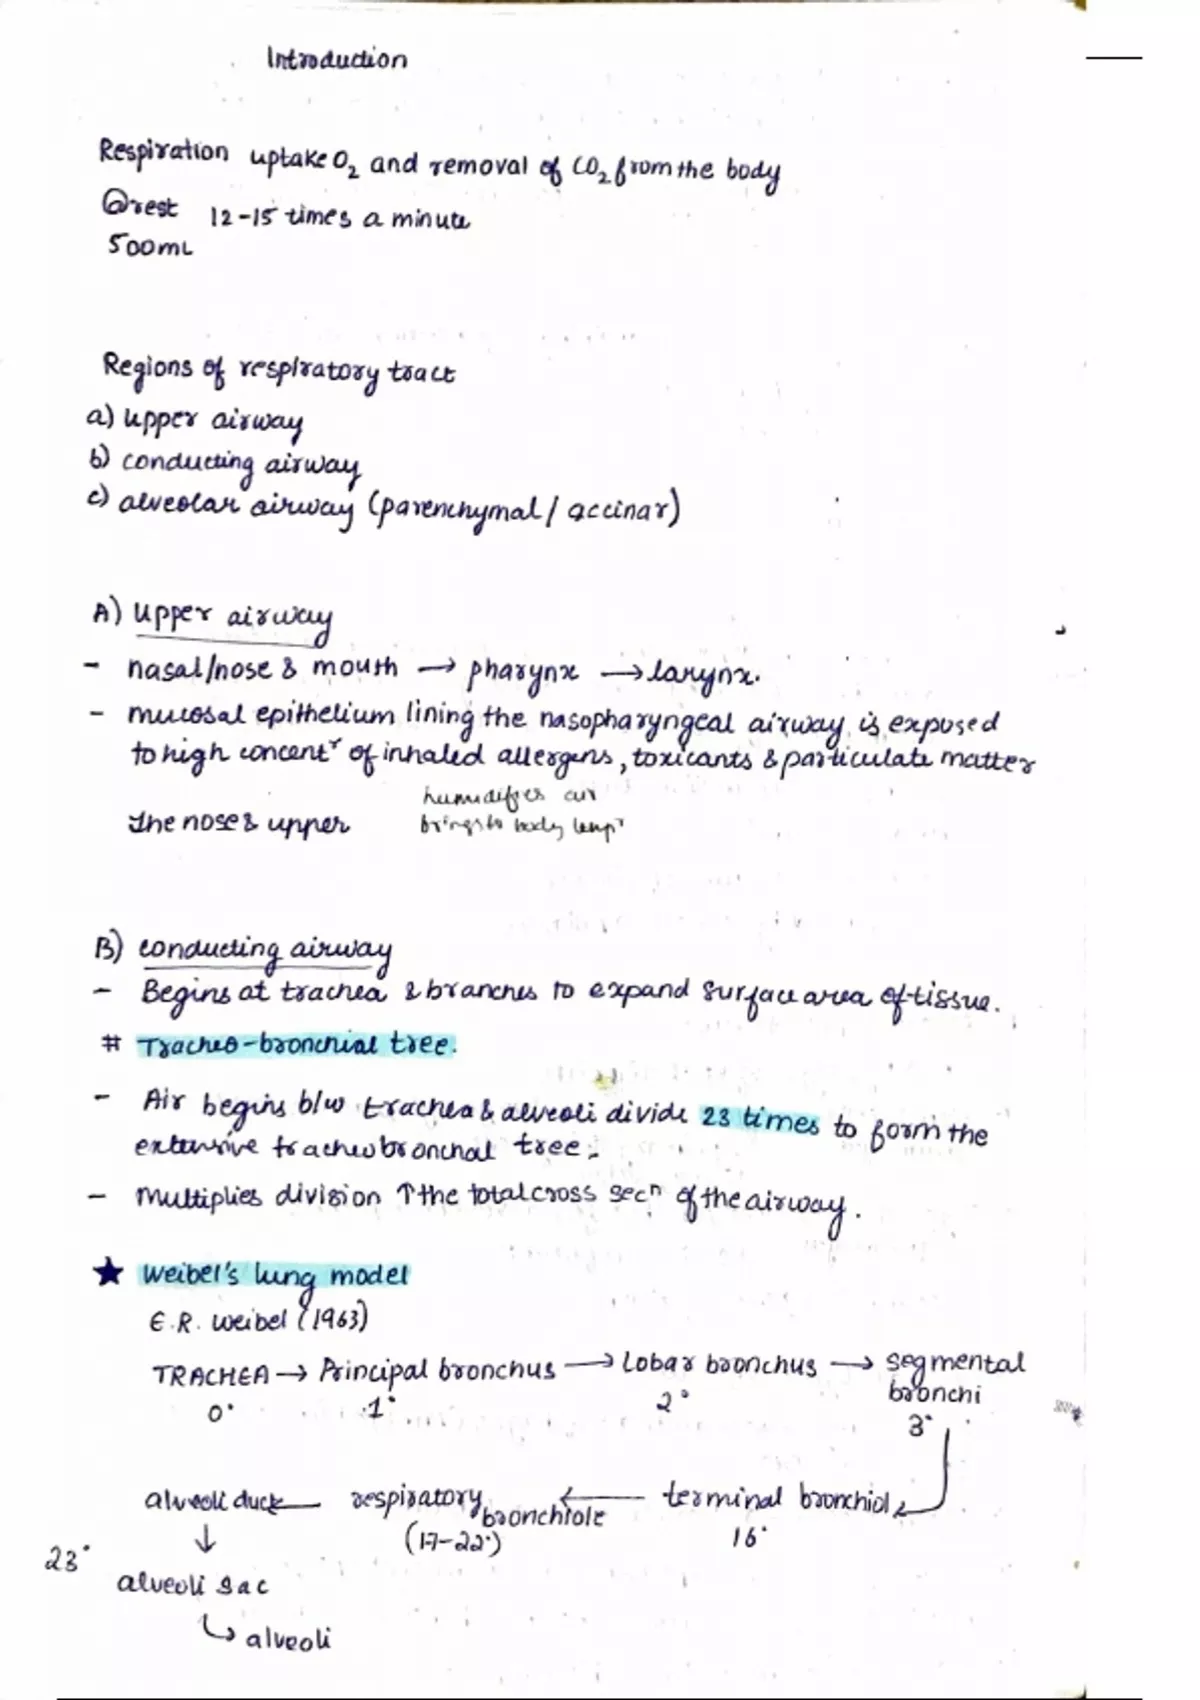 Introduction
Respiration uptake O₂ and removal of CO₂ from the body
@rest 12-15 times a minute
500mL
Regions of respiratory tract
a) upper airway
b) conducting airway
c) alveolar airway (parenchymal / accinar)
A) Upper airway
- nasal/nose & mouth → pharynx → larynx.
- mucosal epithelium lining the nasopharyngeal airway is exposed
to high concentʳ of inhaled allergens, toxicants & particulate matter
humidifies air
The nose & upper brings to body tempʳ
B) conducting airway
- Begins at trachea & branches to expand surface area of tissue.
# Tracheo-bronchial tree.
- Air begins b/w trachea & alveoli divide 23 times to form the
extensive tracheobronchal tree.
- Multiplies division ↑ the total cross secⁿ of the airway.
★ Weibel's lung model
E.R. Weibel (1963)
TRACHEA → Principal bronchus → Lobar bronchus → segmental
bronchi
0° 1° 2° 3°
alveoli duck ← respiratory bronchiole ← terminal bronchiole
(17-22°) 16°
↓
23° alveoli sac
↳ alveoli